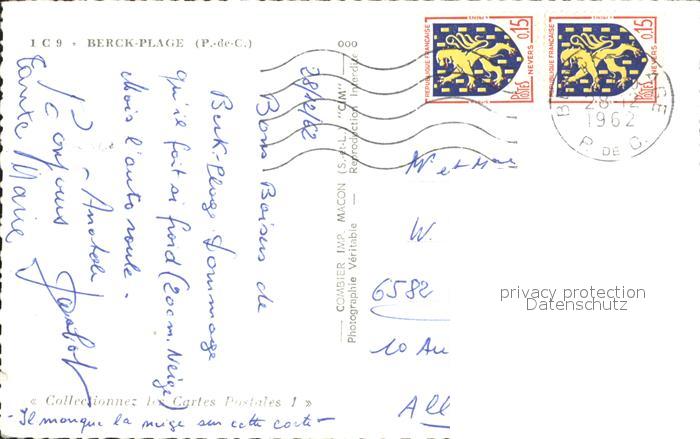 1 C 9 - BERCK-PLAGE (P.-de-C.)
28/12/62
Bons Baisers de
Berck-Plage. Dommage
qu'il fait si froid (20 cm. Neige)
Mais l'auto roule.
Anatole
Toujours
Tante Marie
« Collectionnez les Cartes Postales ! »
- Il manque la neige sur cette carte -
ooo
COMBIER IMP. MACON (S.-et-L.) "CIM"
Photographie Véritable — Reproduction Interdite
REPUBLIQUE FRANÇAISE
0,15
NEVERS
POSTES
REPUBLIQUE FRANÇAISE
0,15
NEVERS
POSTES
28-12
1962
P. DE C.
Mr et Mme
W.
6582
10 Au
All
privacy protection
Datenschutz